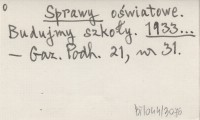 Sprawy oświatowe.
Budujmy szkoły. 1933...
— Gaz. Podh. 21, nr 31.